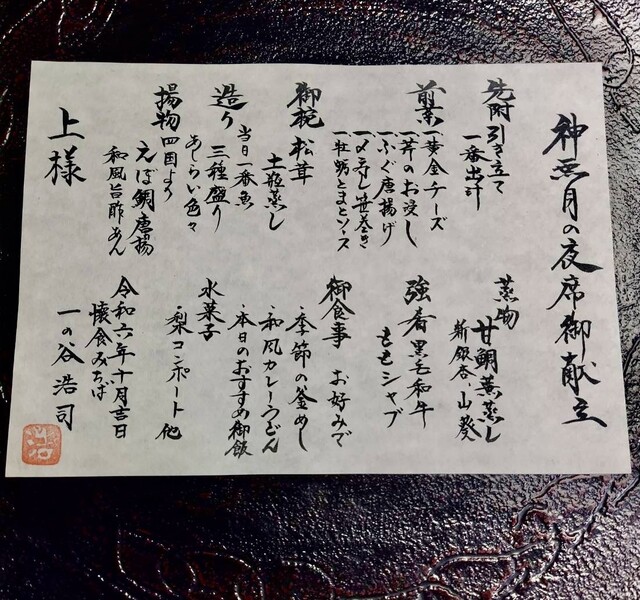 神無月の夜席御献立
先附 引き立て
一番出汁
前菜 一、黄金チーズ
一、茸のお浸し
一、ふぐ唐揚げ
一、〆寿し笹巻き
一、牡蛎とまとソース
御椀 松茸
土瓶蒸し
造り 当日一番魚
三種盛り
あしらい色々
揚物 四国より
えぼ鯛唐揚
和風旨酢あん
蒸物 甘鯛蕪蒸し
新銀杏、山葵
強肴 黒毛和牛
ももシャブ
御食事 お好みで
・季節の釜めし
・和風カレーうどん
・本日のおすすめ御飯
水菓子
・梨コンポート 他
令和六年十月吉日
懐食みちば
一の谷浩司
上様